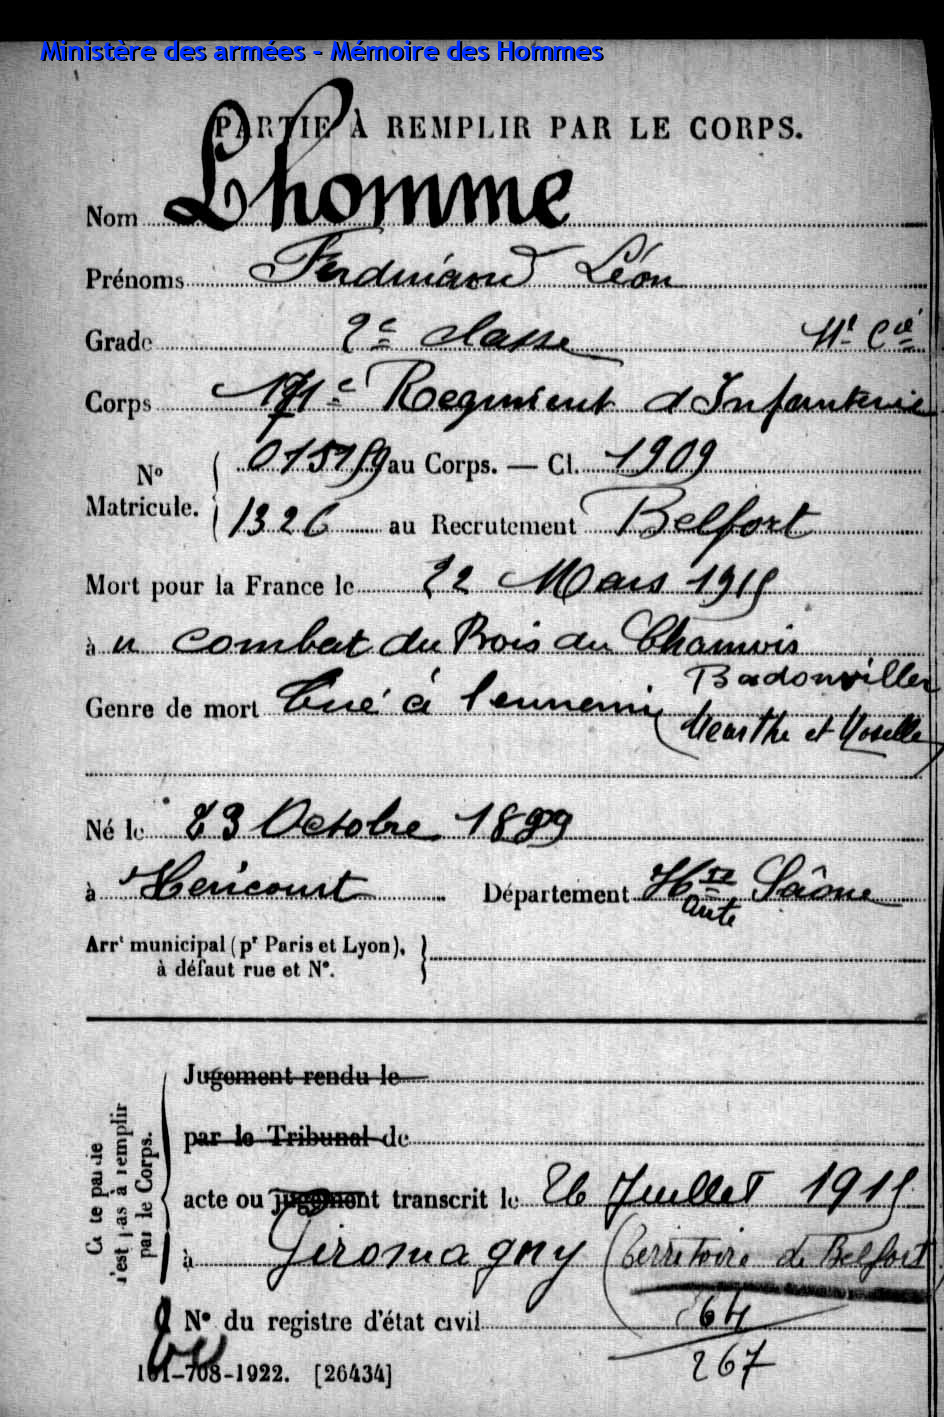 Ministère des armées - Mémoire des Hommes
PARTIE À REMPLIR PAR LE CORPS.
Nom Lhomme
Prénoms Ferdinand Léon
Grade 2e classe 11e Cie
Corps 171e Regiment d'Infanterie
No Matricule. 015159 au Corps. — Cl. 1909
1326 au Recrutement Belfort
Mort pour la France le 22 Mars 1915
à u combat du Bois du Chamois
Badonviller
Genre de mort Tué à l'ennemi (Meurthe et Moselle)
Né le 23 Octobre 1889
à Hericourt Département Hte Saône
aute
Arrt municipal (pr Paris et Lyon), à défaut rue et No.
Jugement rendu le
par le Tribunal de
acte ou jugement transcrit le 26 Juillet 1915
à Giromagny (Territoire de Belfort)
No du registre d'état civil 64
267
101-708-1922. [26434]
Cette partie
n'est pas à remplir
par le Corps.